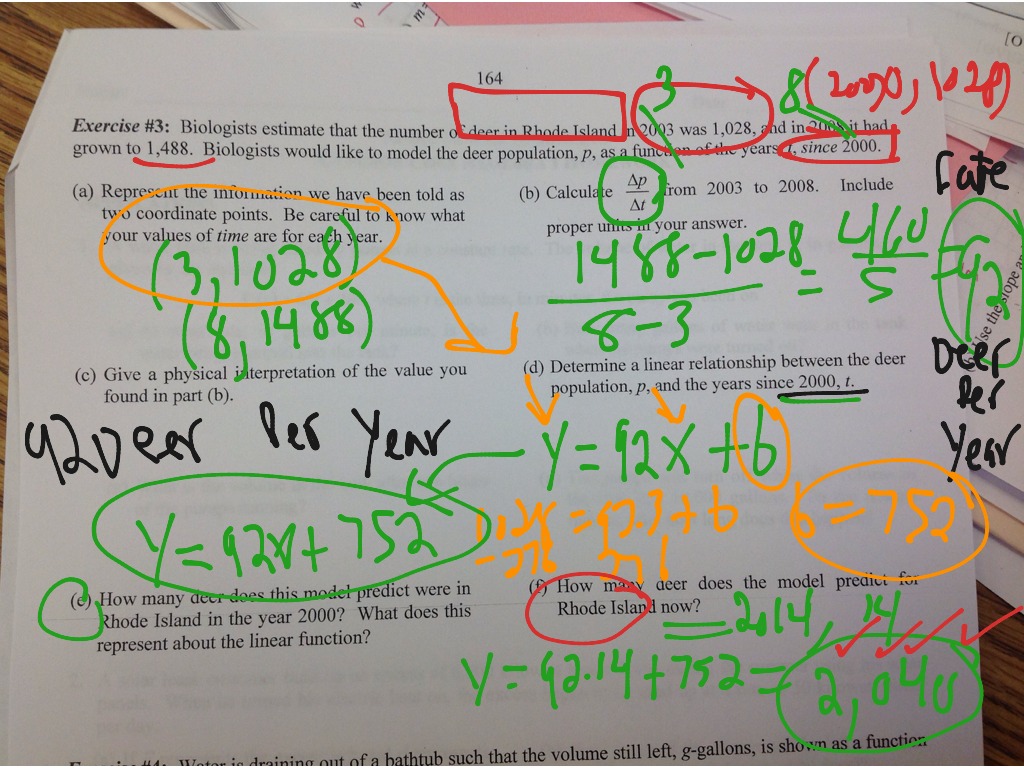 164
3
8 (2003, 1028)
Exercise #3: Biologists estimate that the number of deer in Rhode Island in 2003 was 1,028, and in 2008 it had
grown to 1,488. Biologists would like to model the deer population, p, as a function of the years, t, since 2000.
(a) Represent the information we have been told as
two coordinate points. Be careful to know what
your values of time are for each year.
(3, 1028)
(8, 1488)
(b) Calculate Δp/Δt from 2003 to 2008. Include
proper units in your answer.
1488-1028 / 8-3 = 460/5 = 92
rate
Deer
Per
Year
(c) Give a physical interpretation of the value you
found in part (b).
92 Deer Per Year
(d) Determine a linear relationship between the deer
population, p, and the years since 2000, t.
y = 92x + b
1,028 = 92.3 + b
-276 276
b = 752
y = 92x + 752
(e) How many deer does this model predict were in
Rhode Island in the year 2000? What does this
represent about the linear function?
(f) How many deer does the model predict for
Rhode Island now?
2014, 14
y = 92.14 + 752 = 2,040
Water is draining out of a bathtub such that the volume still left, g-gallons, is shown as a function